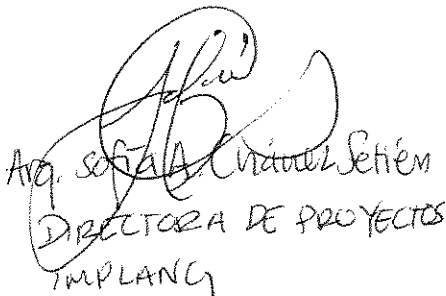 Arq. Sofía A. Chávez Setién
DIRECTORA DE PROYECTOS
IMPLANG